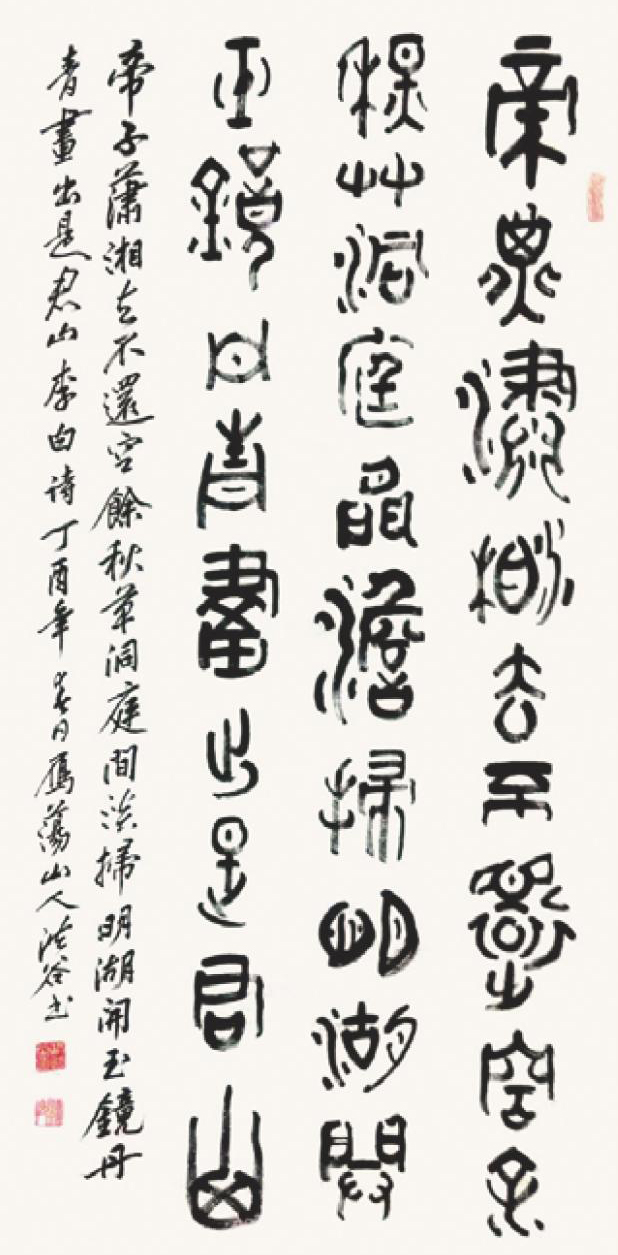 帝子瀟湘去不還空余
秋艸洞庭間澹掃明湖開
玉鏡丹青畫出是君山
帝子瀟湘去不還空餘秋草洞庭間淡掃明湖開玉鏡丹
青畫出是君山李白诗丁酉年春月雁蕩山人谷书